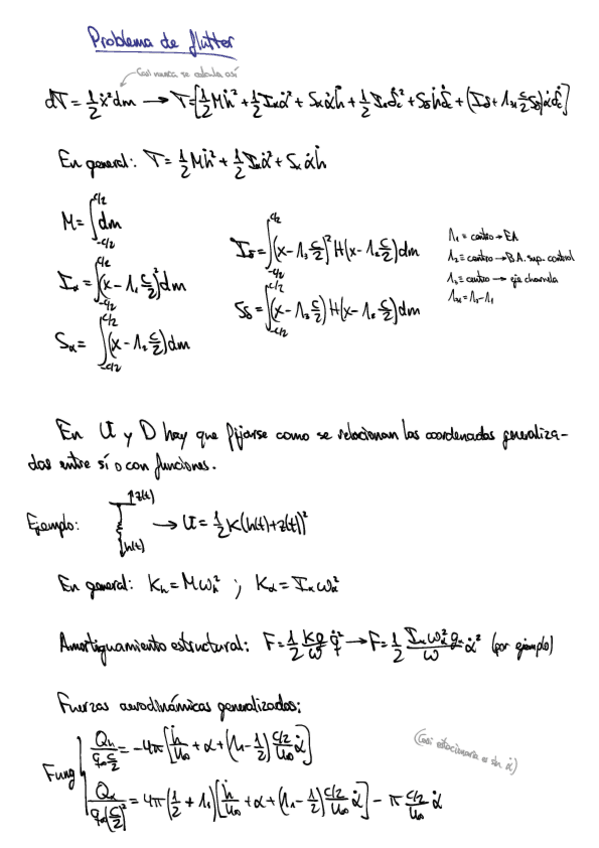 Problema de flutter
Casi nunca se calcula así
dT = 1/2 ẋ² dm → T = [1/2 Mḣ² + 1/2 Iα α̇² + Sα α̇ḣ + 1/2 Iδ δ̇c² + Sδ ḣδ̇c + (Iδ + Λ31 c/2 Sδ) α̇δ̇c]
En general: T = 1/2 Mḣ² + 1/2 Iα α̇² + Sα α̇ḣ
M = ∫_{-c/2}^{c/2} dm
Iα = ∫_{-c/2}^{c/2} (x - Λ1 c/2)² dm
Sα = ∫_{-c/2}^{c/2} (x - Λ1 c/2) dm
Iδ = ∫_{-c/2}^{c/2} (x - Λ3 c/2)² H(x - Λ2 c/2) dm
Sδ = ∫_{-c/2}^{c/2} (x - Λ3 c/2) H(x - Λ2 c/2) dm
Λ1 ≡ centro → EA
Λ2 ≡ centro → B.A. sup. control
Λ3 ≡ centro → eje charnela
Λ31 = Λ3 - Λ1
En U y D hay que fijarse como se relacionan las coordenadas generaliza-
das entre sí o con funciones.
Ejemplo: z(t) h(t) → U = 1/2 K(h(t)+z(t))²
En general: Kh = Mωh² ; Kα = Iα ωα²
Amortiguamiento estructural: F = 1/2 Kg/ω q̇² → F = 1/2 Iα ωα² gα/ω α̇² (por ejemplo)
Fuerzas aerodinámicas generalizadas:
Fung
Qh/(q∞ c/2) = -4π [ḣ/U∞ + α + (Λ1 - 1/2) (c/2)/U∞ α̇]
(Casi estacionaria es sin α̇)
Qα/(q∞ (c/2)²) = 4π (1/2 + Λ1) [ḣ/U∞ + α + (Λ1 - 1/2) (c/2)/U∞ α̇] - π (c/2)/U∞ α̇